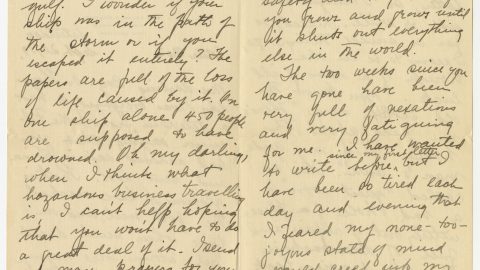 gulf. I wonder if your
ship was in the path of
the storm or if you
escaped it entirely? The
papers are full of the loss
of life caused by it. On
one ship alone 450 people
are supposed to have
drowned. Oh my darling,
when I think what
hazardous business travelling
is, I can't help hoping
that you won't have to do
a great deal of it. I send
many prayers for your
you grows and grows until
it shuts out everything
else in the world.
The two weeks since you
have gone have been
very full of vexations
and very fatiguing
for me. I have wanted
since my first letter
to write before, but I
have been so tired each
day and evening that
I feared my none-too-
joyous state of mind
would creep into my